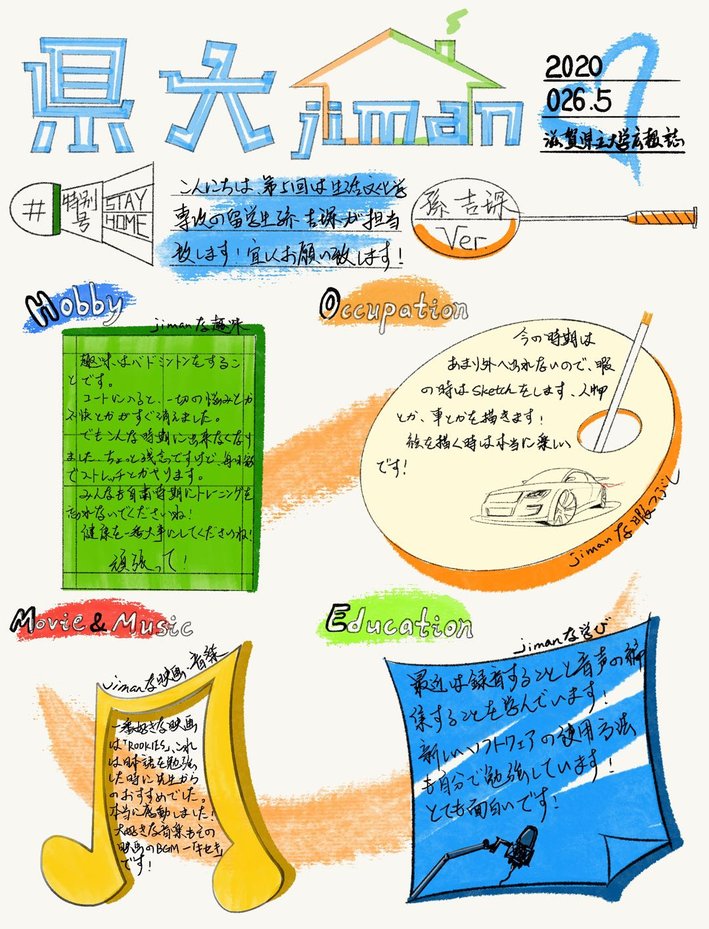 県大jiman
2020
026.5
滋賀県立大学広報誌
# 特別号 STAY HOME
こんにちは、第51回は生活文化学
専攻の留学生孫 吉琛が担当
致します!宜しくお願い致します!
孫 吉琛
Ver.
Hobby
jimanな趣味
趣味はバドミントンをするこ
とです。
コートに入ると、一切の悩みとか
不快とかがすぐ消えました。
でもこんな時期に出来なくなり
ました、ちょっと残念ですけど、毎日家
でストレッチとかやります。
みんなも自粛時期にトレーニングを
忘れないでくださいね!
健康を一番大事にしてくださいね!
頑張って!
Occupation
今の時期は
あまり外へ出れないので、暇
の時はSketchをします、人物
とか、車とかを描きます!
絵を描く時は本当に楽しい
です!
jimanな暇つぶし
Movie & Music
jimanな映画・音楽
一番好きな映画
は「ROOKIES」、これ
は日本語を勉強
した時に先生から
のおすすめでした。
本当に感動しました!
大好きな音楽もその
映画のBGM―「キセキ」
です!
Education
jimanな学び
最近は録音することと音声の編
集することを学んでいます!
新しいソフトウェアの使用方法
も自分で勉強しています!
とても面白いです!